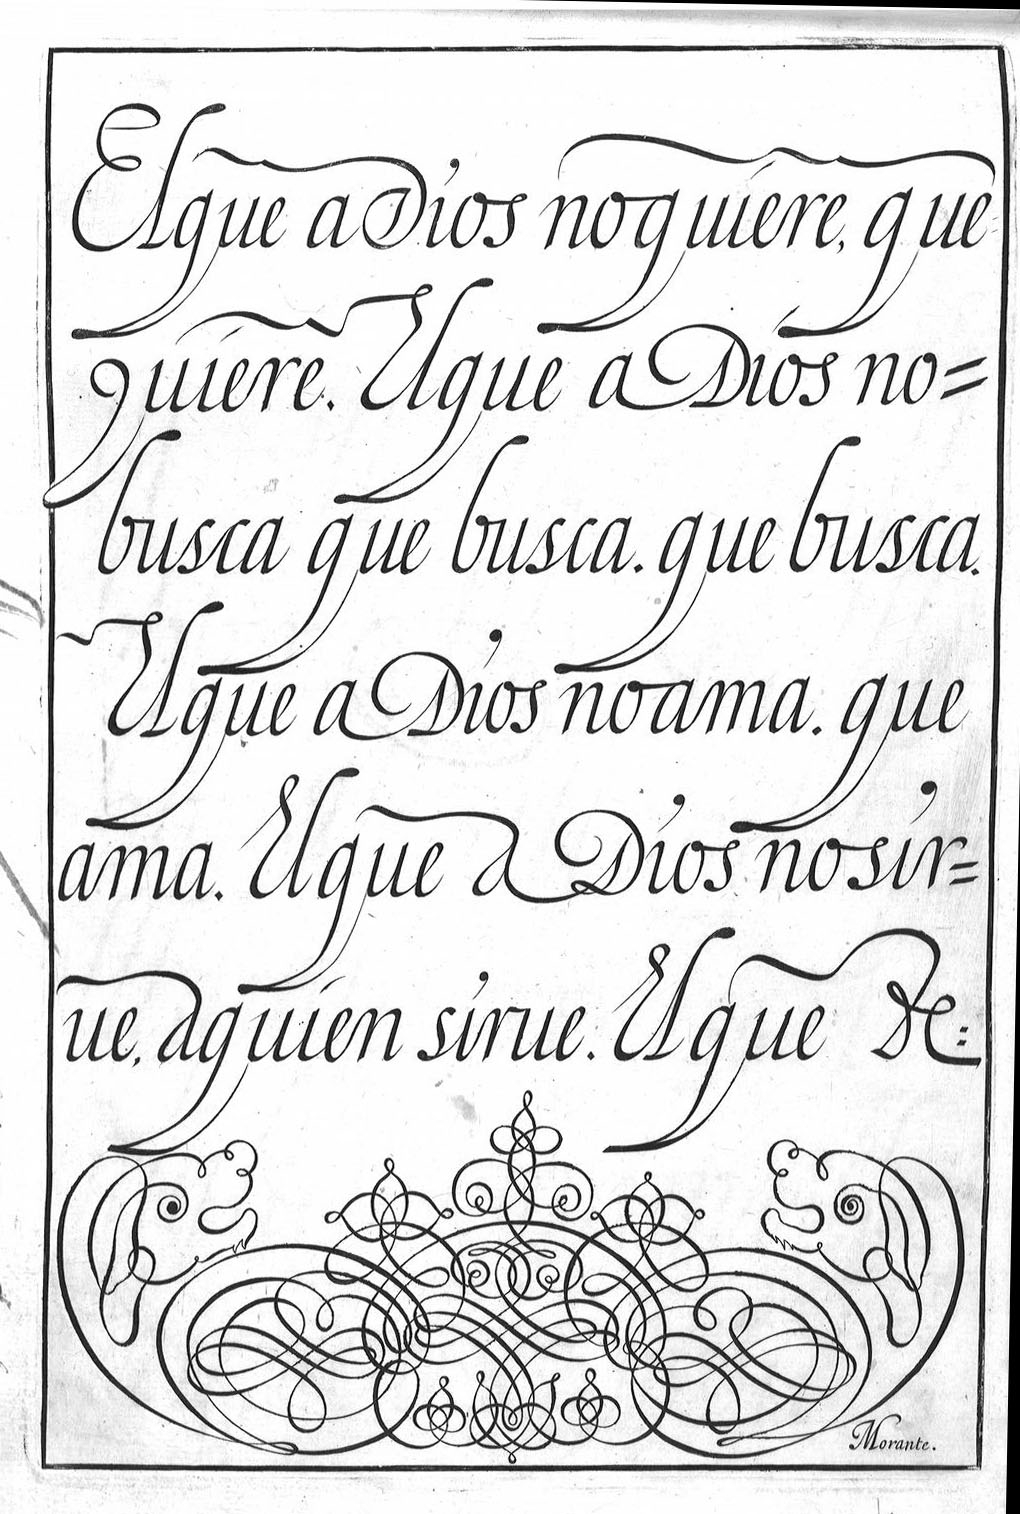 El que a Dios no quiere, que
quiere. El que a Dios no=
busca que busca. que busca.
El que a Dios no ama. que
ama. El que a Dios no sir=
ue, a quien sirue. El que &c:
Morante.